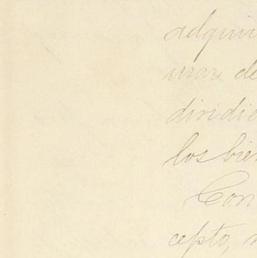 adquiri
usar de
dividie
los bien
Con
cepto,